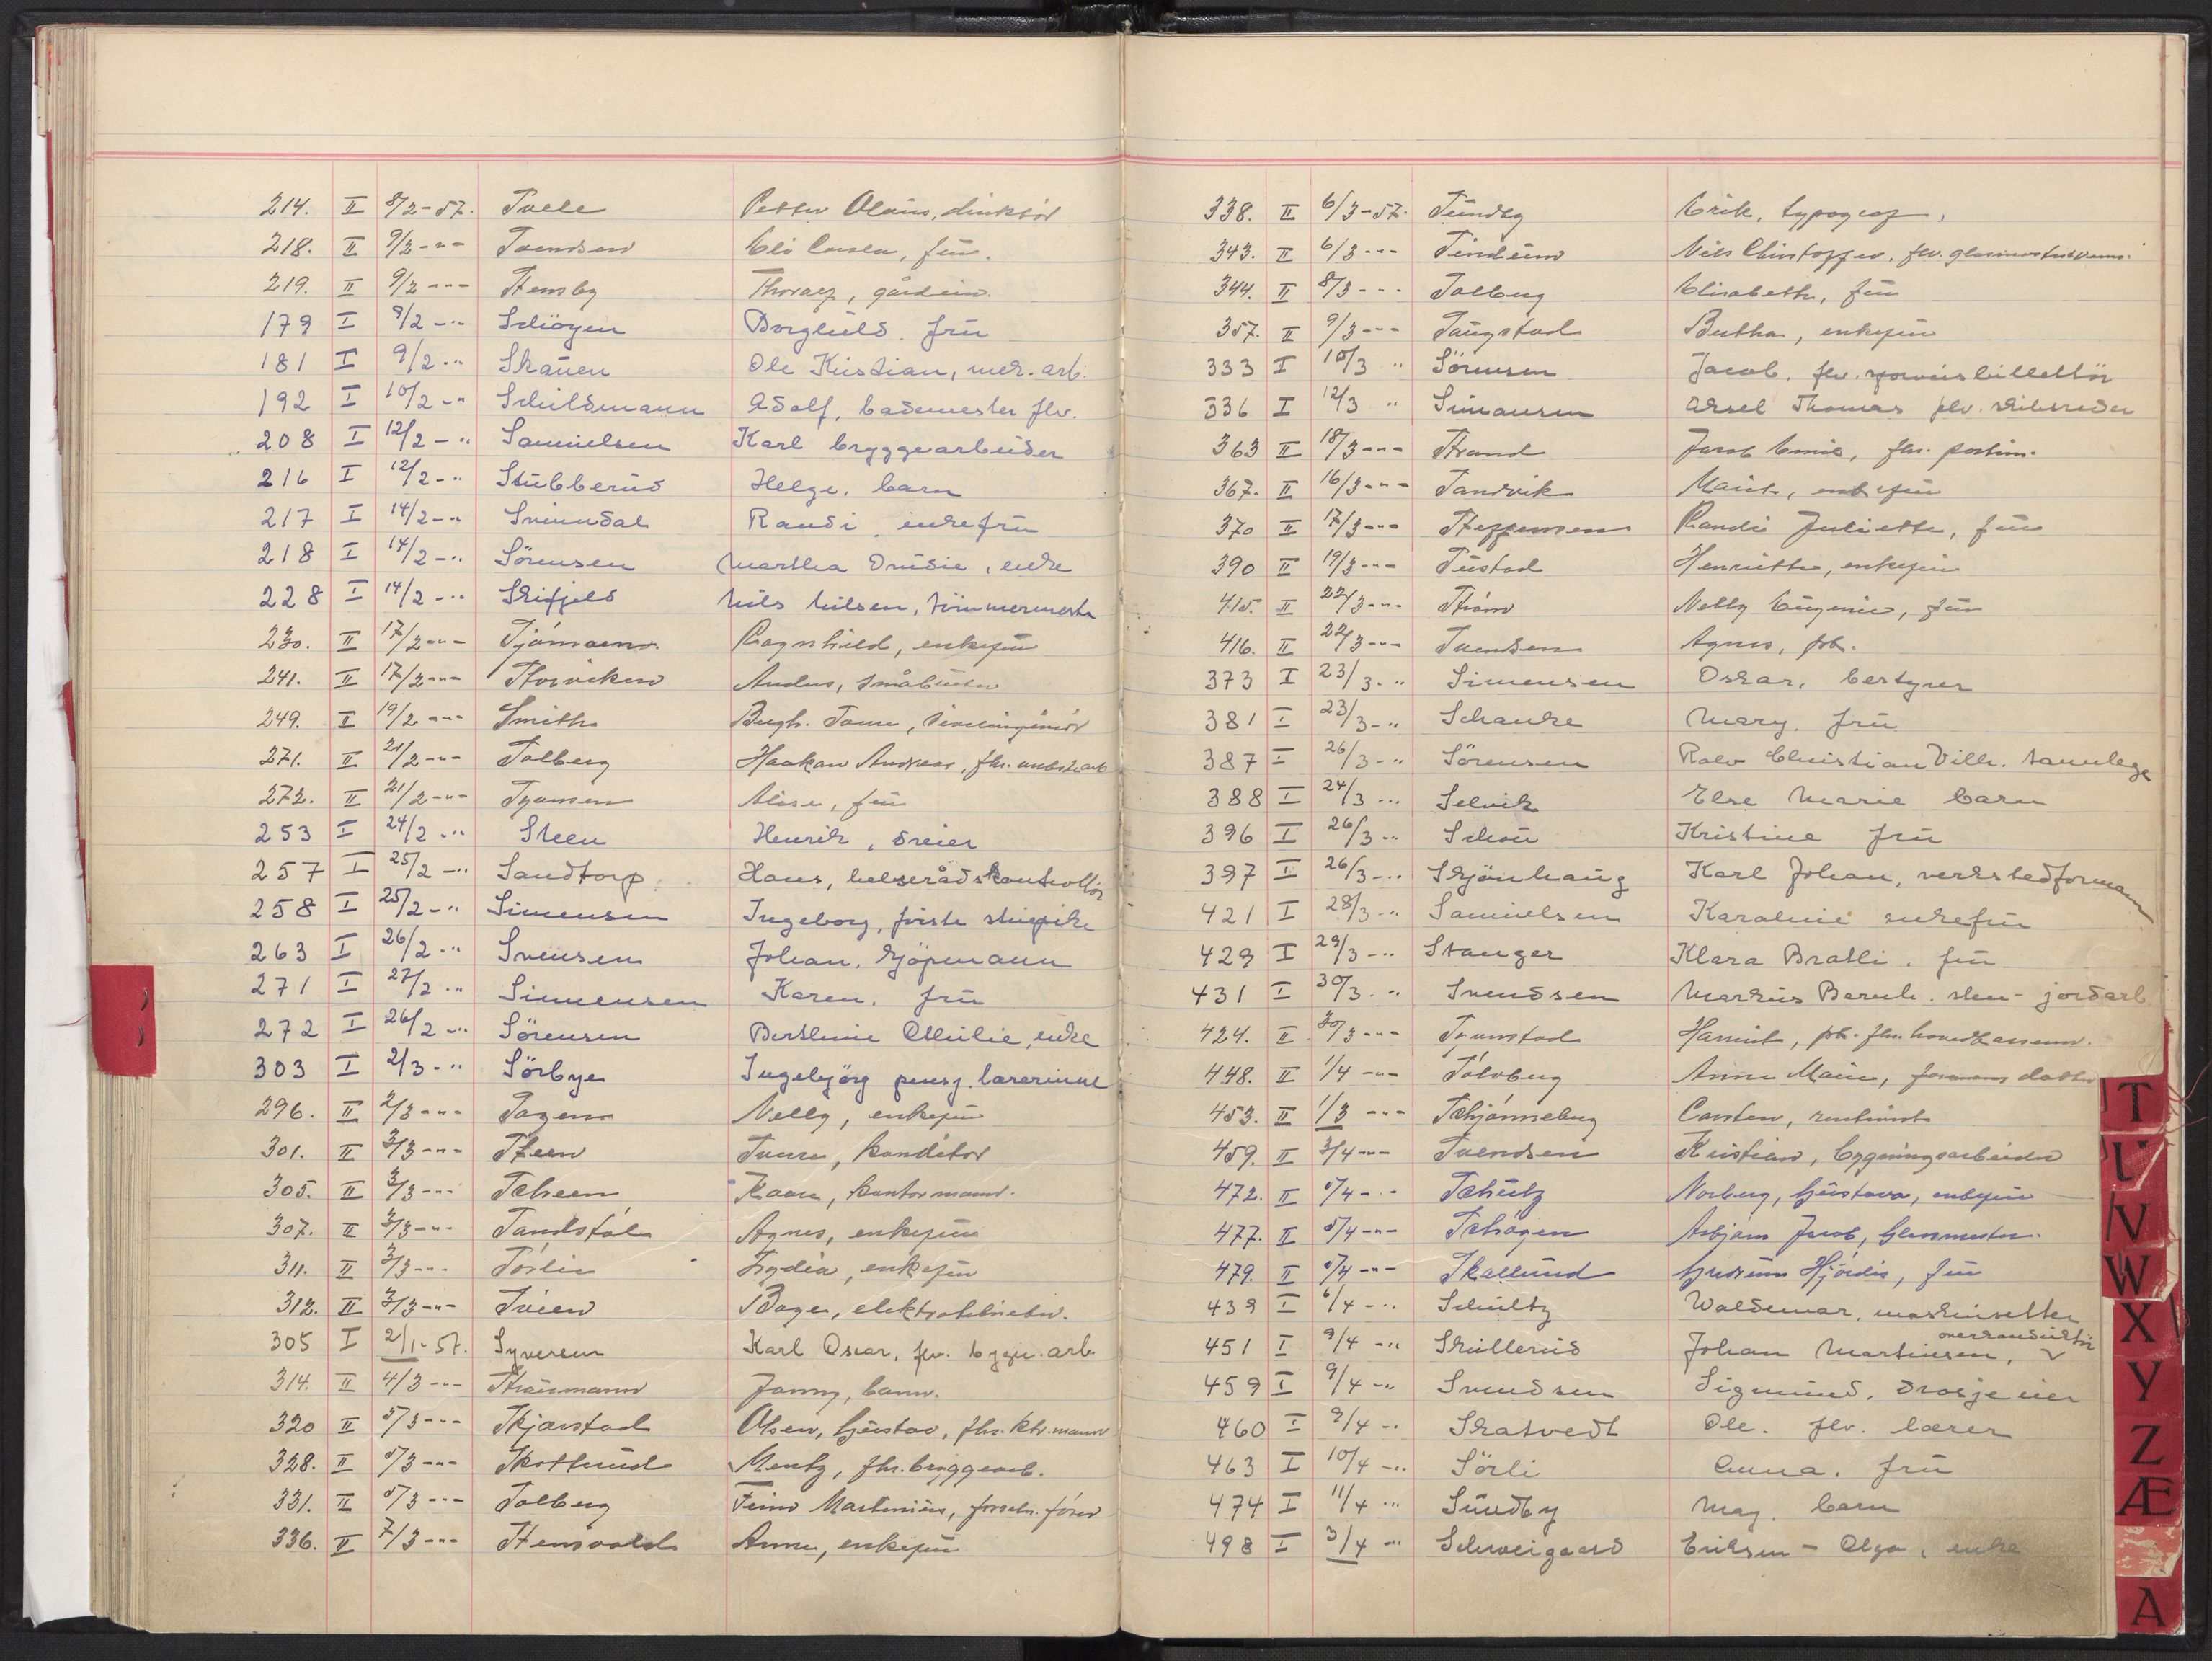 214. II 8/2-57. Svele Petter Olaus, direktör
218. II 9/2 -"- Svendsen Eli Carola, frü.
219. II 9/2 -"- Stensby Thoralf, gårdein.
179 I 9/2 -" Schiöyen Borghild. frü
181 I 9/2 -" Skauen Ole Kristian, mek. arb.
192 I 10/2 -" Schildmann Adolf, bademester flv.
208 I 12/2 -" Samuelsen Karl bryggearbeider
216 I 12/2 -" Stubberud Helge. barn
217 I 14/2 -" Svinndal Randi enkefrü
218 I 14/2 -" Sörensen Martha enke
228 I 14/2 -" Skifjeld Nils Nilsen, tömmermester
230. II 17/2 -"- Ragnhild, enkefrü
241. II 17/2 -"- Storviken småbruker
249. II 19/2 -"- Smith sivilingeniör
271. II 21/2 -"- Solberg Haakon Andreas, fhv.
272. II 21/2 -"- Alise, frü
253 I 24/2 -" Steen Henrik, dreier
257 I 25/2 -" Sandtorp Hans, helserådskontrollör
258 I 25/2 -" Simensen Ingeborg, förste
263 I 26/2 -" Svensen Johan. kjöpmann
271 I 27/2 -" Simensen Karen. frü
272 I 26/2 -" Sörensen Berthine Othilie, enke
303 I 2/3 -" Sörbye Ingebjörg pensj. lærerinne
296. II 2/3 -"- Nelly, enkefrü
301. II 3/3 -"- Steen konditor
305. II 3/3 -"- Scheen Kaare, kontormann.
307. II 3/3 -"- Sandstöl Agnes, enkefrü
311. II 3/3 -"- Sörlie Lydia, enkefrü
312. II 3/3 -"- Sveen
305 I 2/1-57. Syversen Karl Oscar, flv. bygn. arb.
314. II 4/3 -"- Straumann Jonny, barn.
320 II 5/3 -"- Skjærstad Olsen, Gustav, fhv. ktr. mann
328. II 5/3 -"- Skotlund Mentz, fhv. bryggearb.
331. II 5/3 -"- Solberg
336. II 7/3 -"- Stensvold Anna, enkefrü
338. II 6/3-57. Sundby Erik, typograf.
343. II 6/3 -"- Nils Christoffer, fhv.
344. II 8/3 -"- Solberg Elisabeth, frü
357. II 9/3 -"- Saugstad Bertha, enkefrü
333 I 10/3 " Sörensen Jacob. flv.
336 I 12/3 " Simonsen Aksel Thomas flv. skibsreder
363 II 18/3 -"- Strand Jacob Emil, fhv.
367. II 16/3 -"- Sandvik Marie, enkefrü
370 II 17/3 -"- Steffensen Randi Juliette, frü
390 II 19/3 -"- Henriette, enkefrü
415. II 22/3 -"- Ström Nelly Eugenie, frü
416. II 22/3 -"- Svendsen Agnes, frk.
373 I 23/3 -" Simensen Oskar, bestyrer
381 I 23/3 -" Schanke Mary. frü
387 I 26/3 -" Sörensen Rolv Christian Vilh. tannlege
388 I 24/3 -" Selvik Else Marie barn
396 I 26/3 -" Schou Kristine frü
397 I 26/3 -" Skjönhaug Karl Johan, verkstedformann
421 I 28/3 -" Samuelsen Karoline enkefrü
429 I 29/3 -" Stanger Klara Bratli. frü
431 I 30/3 -" Svendsen Markus sten- jordarb.
424. II 30/3 -"- frk. fhv.
448. II 1/4 -"- Sölvberg Anna Marie,
453. II 1/3 -"- Skjönneberg Carsten, rentenist
459. II 3/4 -"- Svendsen Kristian, bygningsarbeider
472. II 5/4 -"- Schütz Norberg, Gustava, enkefrü
477. II 5/4 -"- Schögen Asbjörn Jacob, Glassmester.
479. II 5/4 -"- Skallund Gudrun Hjördis, frü
439 I 6/4 -" Schultz Waldemar, maskinsetter
451 I 9/4 -" Skullerud Johan Martinsen, overkonduktör
459 I 9/4 -" Svendsen Sigmund, drosjeeier
460 I 9/4 -" Skatvedt Ole. flv. lærer
463 I 10/4 -" Sörli Anna. frü
474 I 11/4 -" Sundby May. barn
498 I 3/4 -" Schweigaard Eriksen - Olga, enke
T
U
V
W
X
Y
Z
Æ
A